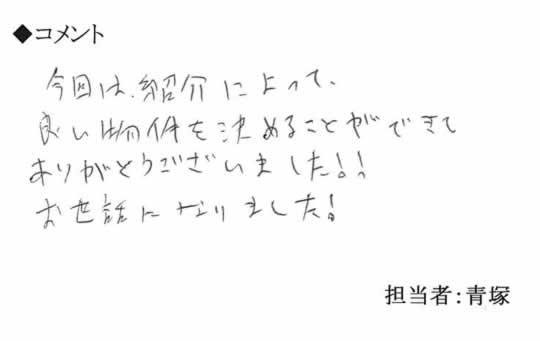 ◆コメント
今回は、紹介によって、
良い物件を決めることができて
ありがとうございました!!
お世話になりました!
担当者:青塚